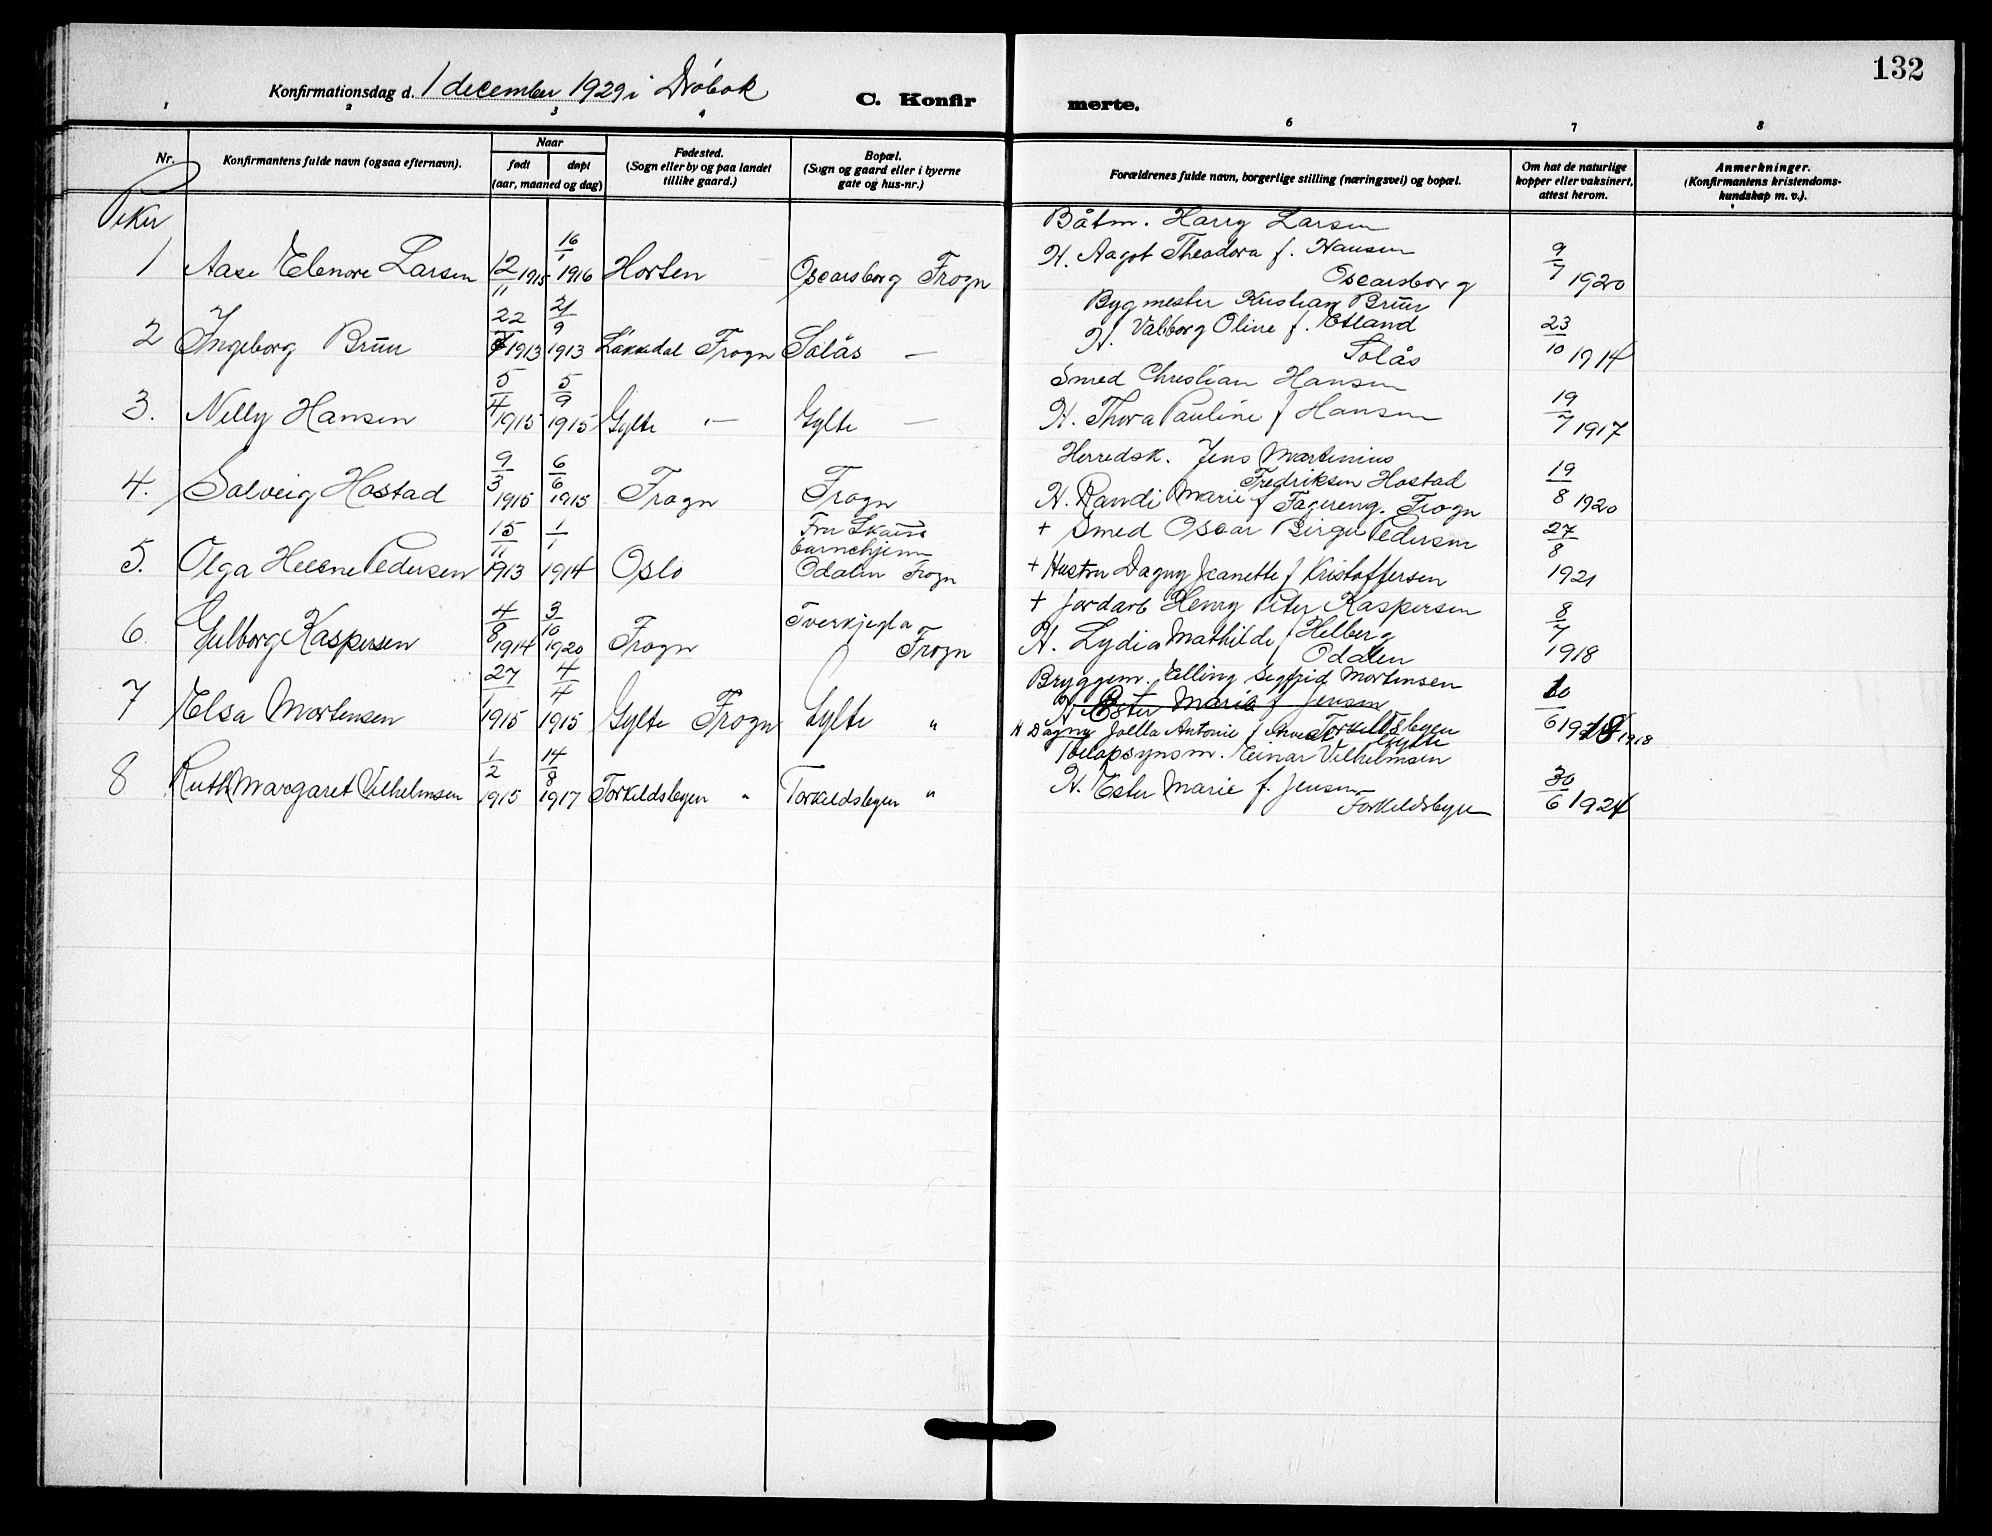 132
Konfirmationsdag d. 1 december 1929 i Drøbak
C. Konfir merte.
1 2 3 4 6 7 8
Nr.
Konfirmantens fulde navn (ogsaa efternavn).
Naar
født døpt
(aar, maaned og dag)
Fødested.
(Sogn eller by og paa landet
tillike gaard.)
Bopæl.
(Sogn og gaard eller i byerne
gate og hus-nr.)
Forældrenes fulde navn, borgerlige stilling (næringsvei) og bopæl.
Om hat de naturlige
kopper eller vaksinert,
attest herom.
Anmerkninger.
(Konfirmantens kristendoms-
kundskap m. v.).
Piker
1 Aase Elenore Larsen 12/11 1915 16/1 1916 Horten Oscarsborg Frogn
Båtm. Harry Larsen
H. Aagot Theodora f. Hansen
Oscarsborg
9/7 1920
2 Ingeborg Bruu 22/ 1913 21/9 1913 Løkkedal Frogn Solås —
Bygmester Kristian Bruu
H. Valborg Oline f. Etland
Solås
23/10 1914
3. Nelly Hansen 5/4 1915 5/9 1915 Gylte — Gylte —
Smed Christian Hansen
H. Thora Pauline f Hansen
19/7 1917
4. Solveig Hostad 9/3 1915 6/6 1915 Frogn Frogn
Herredsk. Jens Martinius
Fredriksen Hostad
H. Randi Marie f Fagereng. Frogn
19/8 1920
5. Olga Helene Pedersen 15/11 1913 1/1 1914 Oslo
Fru Skaus
barnehjem
Odalen Frogn
+ Smed Oscar Birger Pedersen
+ Hustru Dagny Jeanette f Kristoffersen
27/8 1921
6. Gulborg Kaspersen 4/8 1914 3/10 1920 Frogn
Tverkjegla
Frogn
+ Jordarb Henry Peter Kaspersen
H. Lydia Mathilde f Helberg
Odalen
8/7 1918
7 Elsa Mortensen 27/1 1915 4/4 1915 Gylte Frogn Gylte "
Bryggem. Elling Sigfrid Mortensen
H Ester Marie f Jensen
Torkildsbyen
H Dagny Joella Antonie f
Gylte
10/6 1918 1918
8 Ruth Margaret Vilhelmsen 1/2 1915 14/8 1917 Torkildsbyen " Torkildsbyen "
Toldopsynsm. Einar Vilhelmsen
H. Ester Marie f. Jensen
Torkildsbyen
30/6 1924